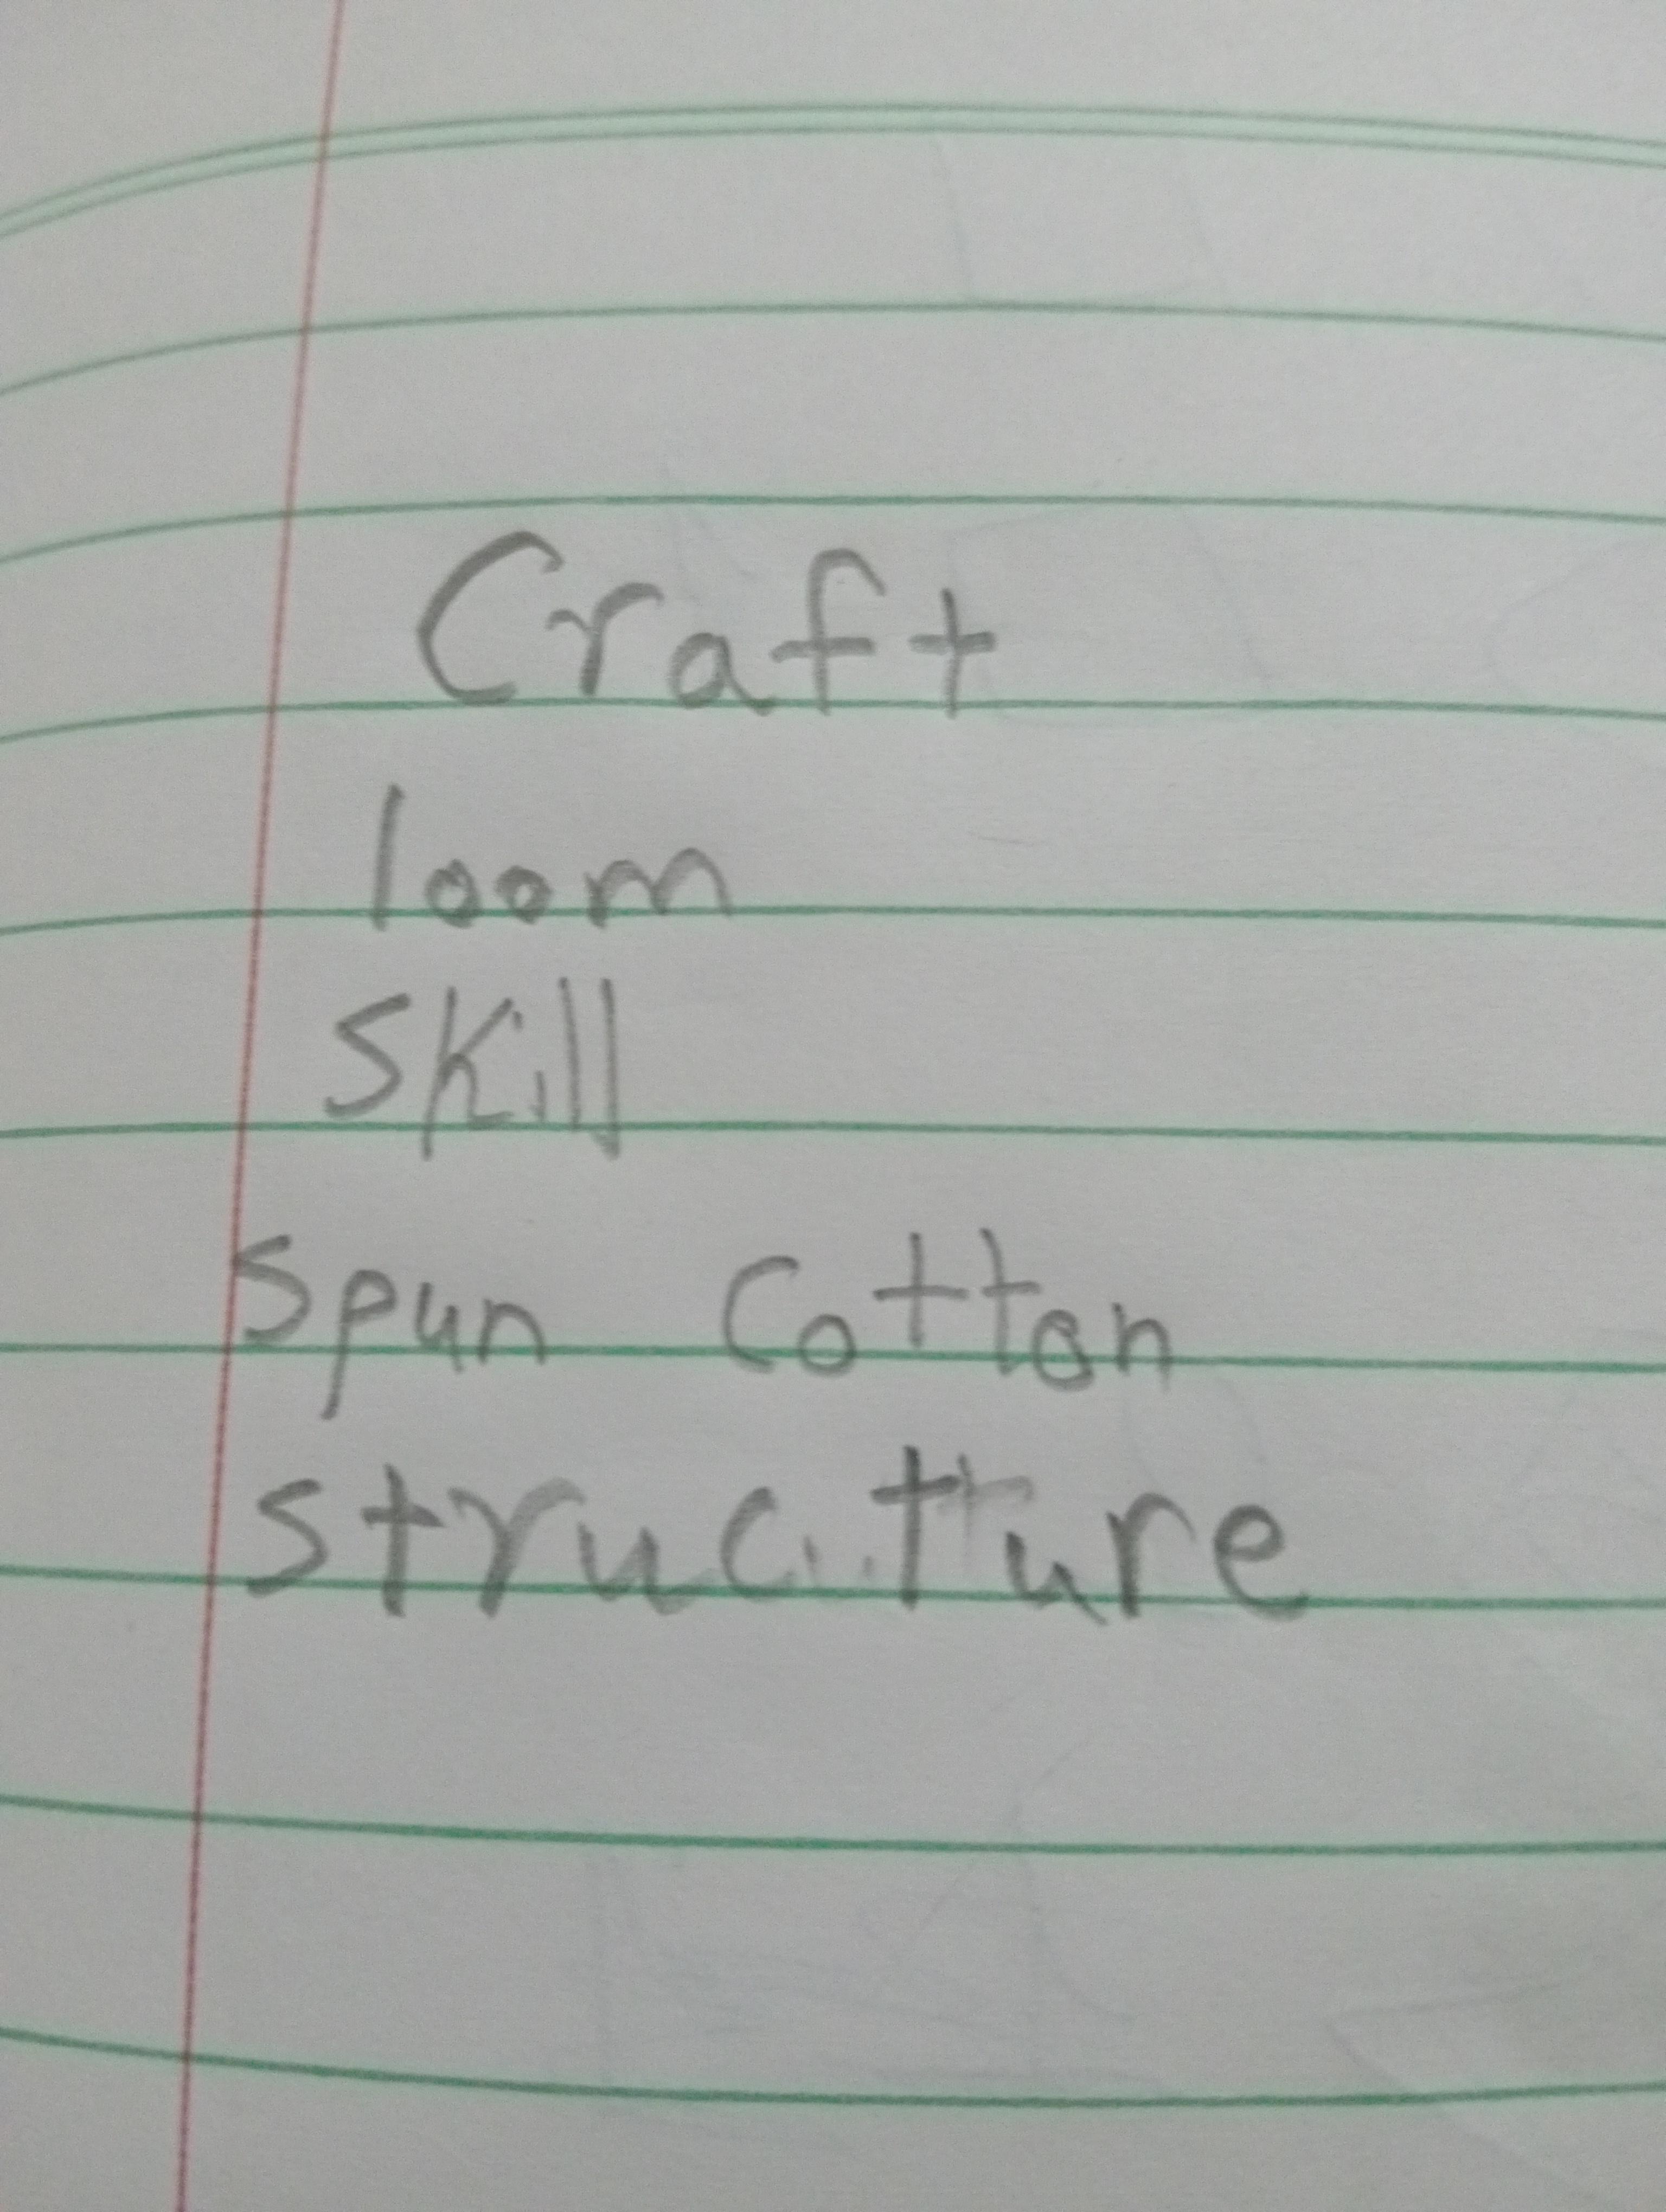 Craft
loom
skill
Spun cotton
structure